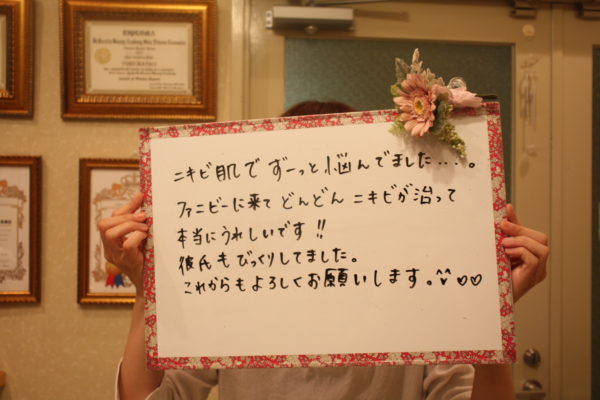 DIPLOMA
ニキビ肌で ずーっと悩んでました・・・。
ファニビーに来て どんどん ニキビが治って
本当にうれしいです!!
彼氏もびっくりしてました。
これからもよろしくお願いします。^^ ♡♡